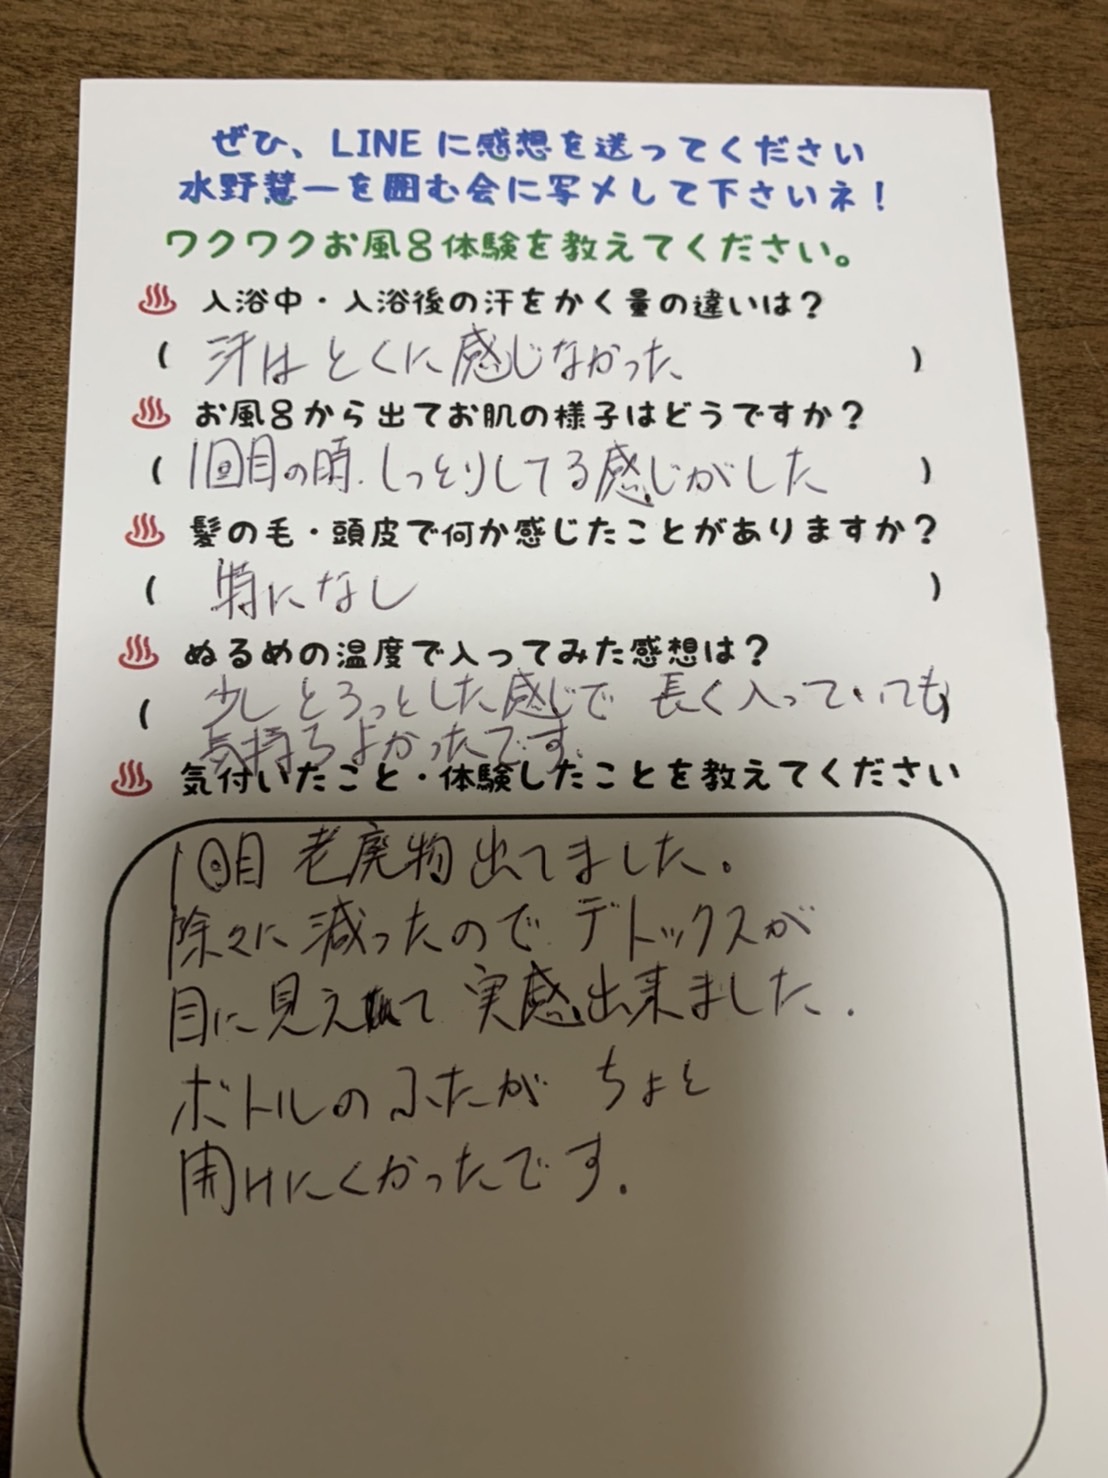 ぜひ、LINEに感想を送ってください
水野慧一を囲む会に写メして下さいネ！
ワクワクお風呂体験を教えてください。
♨ 入浴中・入浴後の汗をかく量の違いは？
( 汗は とくに 感じなかった )
♨ お風呂から出てお肌の様子はどうですか？
( 1回目の頃、しっとりしてる感じがした )
♨ 髪の毛・頭皮で何か感じたことがありますか？
( 特になし )
♨ ぬるめの温度で入ってみた感想は？
( 少し とろっとした感じで 長く入っていても )
気持ちよかったです。
♨ 気付いたこと・体験したことを教えてください
1回目 老廃物 出てました。
除々に 減ったので デトックスが
目に見えて 実感出来ました.
ボトルの ふたが ちょと
開けにくかったです.